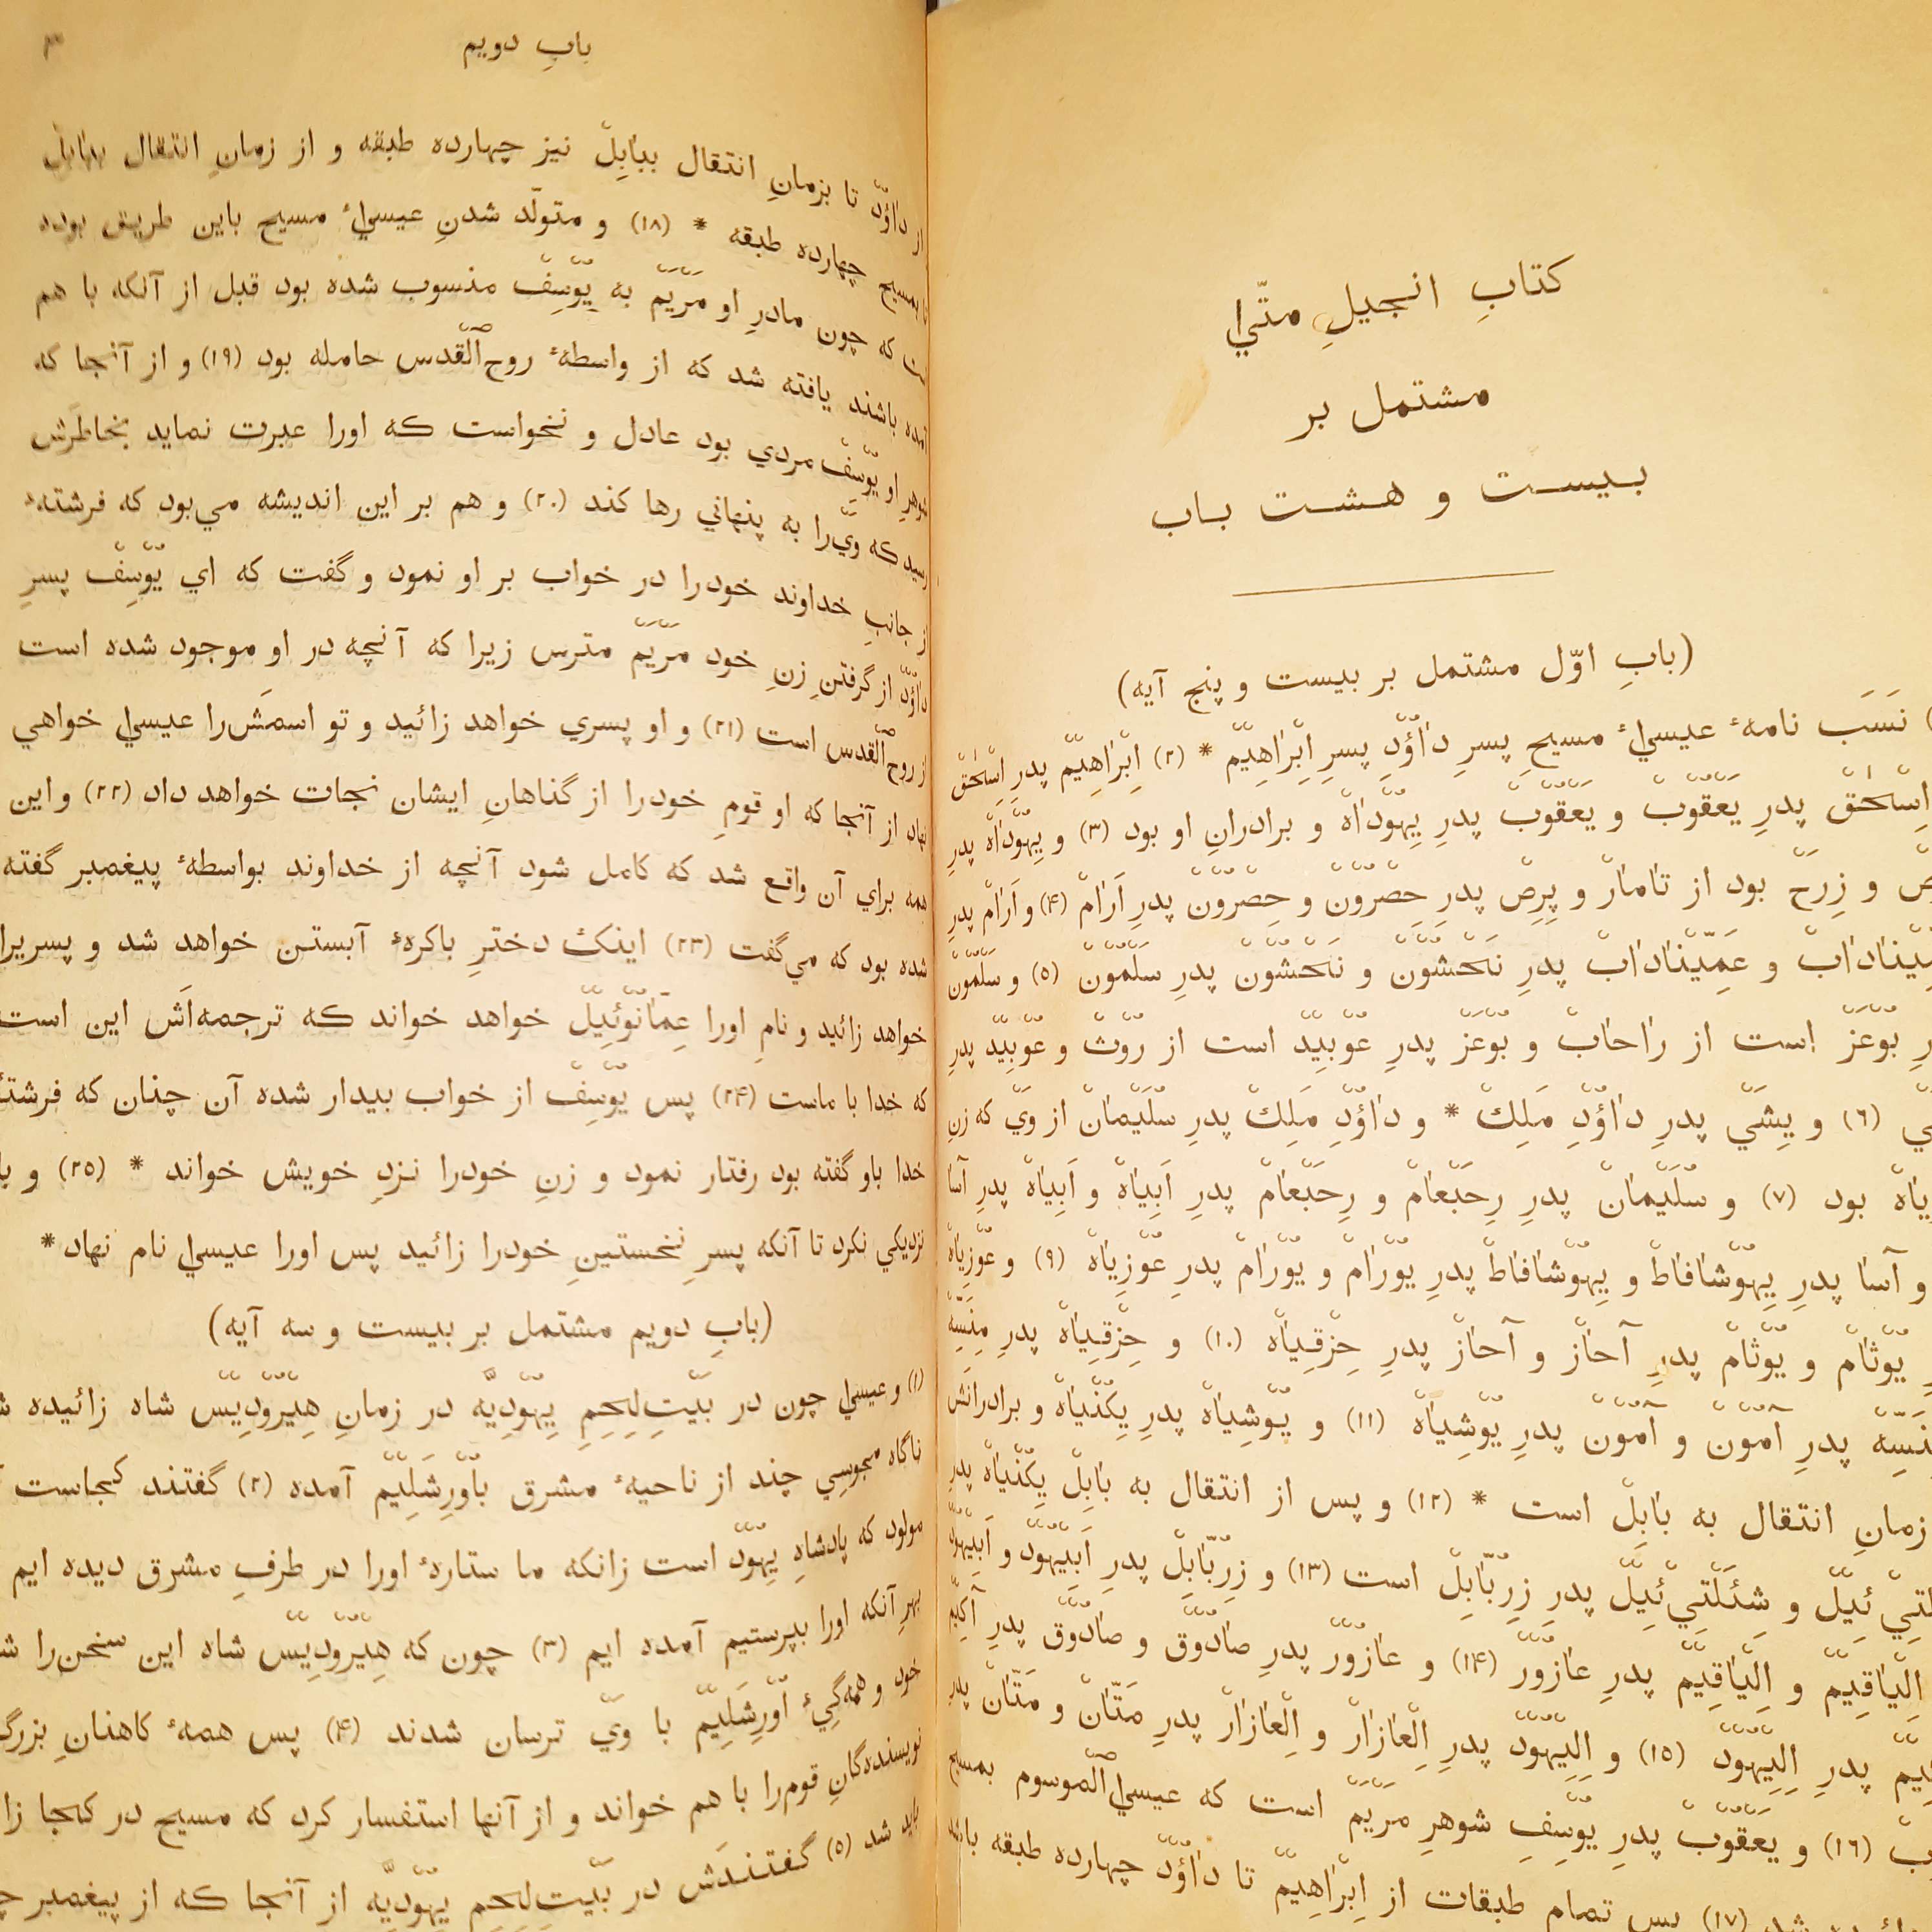 کتابِ انجیلِ متّي
مشتمل بر
بیست و هشت باب
(بابِ اوّل مشتمل بر بیست و پنج آیه)
نَسَب نامهٔ عیسيٰ مسیحِ پسرِ داؤدِ پسرِ اِبْراهِیْم * (۲) اِبْراهِیْم پدرِ اِسْحٰق
اِسْحٰق پدرِ یَعْقوْب و یَعْقوْب پدرِ یِهوْداه و برادرانِ او بود (۳) و یِهوْداه پدرِ
و زِرَح بود از تامار و پِرِص پدرِ حِصْروْن و حِصْروْن پدرِ اَرام (۴) و اَرام پدرِ
و عَمِیْناداب پدرِ نَحْشوْن و نَحْشوْن پدرِ سَلْموْن (۵) و سَلْموْن
بوْعَز است از راحاب و بوْعَز پدرِ عوْبِیْد است از روْث و عوْبِیْد پدرِ
(۶) و یِشَي پدرِ داؤدِ مَلِك * و داؤدِ مَلِك پدرِ سُلَیْمان از وَي که زنِ
بود (۷) و سُلَیْمان پدرِ رِحَبْعام و رِحَبْعام پدرِ اَبِیاه و اَبِیاه پدرِ آسا
و آسا پدرِ یِهوْشافاط و یِهوْشافاط پدرِ یوْرام و یوْرام پدرِ عوْزِیاه (۹) و عوْزِیاه
یوْثام و یوْثام پدرِ آحاز و آحاز پدرِ حِزْقِیاه (۱۰) و حِزْقِیاه پدرِ مِنَسِّه
پدرِ آموْن و آموْن پدرِ یوْشِیاه (۱۱) و یوْشِیاه پدرِ یِکُنْیاه و برادرانَش
زمانِ انتقال به بابِل است * (۱۲) و پس از انتقال به بابِل یِکُنْیاه پدرِ
و شِئَلْتِيْئِیْل پدرِ زِرِبّابِل است (۱۳) و زِرِبّابِل پدرِ اَبِیْهوْد و اَبِیْهوْد
اِلْیاقِیْم و اِلْیاقِیْم پدرِ عازوْر (۱۴) و عازوْر پدرِ صادوْق و صادوْق پدرِ آکِیْم
پدرِ اِلِیْهوْد (۱۵) و اِلِیْهوْد پدرِ اِلْعازار و اِلْعازار پدرِ مَتّان و مَتّان پدرِ
(۱۶) و یَعْقوْب پدرِ یوْسِفِ شوهرِ مَرْیَم است که عیسي الموسوم بمسیح
(۱۷) پس تمام طبقات از اِبْراهِیْم تا داؤد چهارده طبقه باشد
بابِ دویم
۳
از داؤد تا بزمانِ انتقال ببابِل نیز چهارده طبقه و از زمانِ انتقال ببابِل
تا بمسیح چهارده طبقه * (۱۸) و متولّد شدنِ عیسيٰ مسیح باین طریق بوده
که چون مادرِ او مَرْیَم به یوْسِف منسوب شده بود قبل از آنکه با هم
آمده باشند یافته شد که از واسطهٔ روح القدس حامله بود (۱۹) و از آنجا که
شوهرِ او یوْسِف مردي بود عادل و نخواست که اورا عبرت نماید بخاطرَش
رسید که وَيرا به پنهاني رها کند (۲۰) و هم بر این اندیشه مي‌بود که فرشتهٔ
از جانبِ خداوند خودرا در خواب بر او نمود و گفت که اي یوْسِف پسرِ
داؤد از گرفتنِ زنِ خود مَرْیَم مترس زیرا که آنچه در او موجود شده است
از روح القدس است (۲۱) و او پسري خواهد زائید و تو اسمَش‌را عیسي خواهي
نهاد از آنجا که او قومِ خودرا از گناهانِ ایشان نجات خواهد داد (۲۲) و این
همه براي آن واقع شد که کامل شود آنچه از خداوند بواسطهٔ پیغمبر گفته
شده بود که مي‌گفت (۲۳) اینك دخترِ باکرهٔ آبستن خواهد شد و پسریرا
خواهد زائید و نامِ اورا عِمّانوْئِیْل خواهد خواند که ترجمه‌اَش این است
که خدا با ماست (۲۴) پس یوْسِف از خواب بیدار شده آن چنان که فرشتهٔ
خدا باو گفته بود رفتار نمود و زنِ خودرا نزدِ خویش خواند * (۲۵) و با
نزدیکي نکرد تا آنکه پسرِ نخستینِ خودرا زائید پس اورا عیسي نام نهاد *
(بابِ دویم مشتمل بر بیست و سه آیه)
(۱) و عیسي چون در بَیْتِ‌لَحِمِ یِهوْدِیّه در زمانِ هِیْروْدِیْس شاه زائیده
ناگاه مجوسِي چند از ناحیهٔ مشرق باوْرِشَلِیْم آمده (۲) گفتند کجاست
مولود که پادشاهِ یِهوْد است زانکه ما ستارهٔ اورا در طرفِ مشرق دیده ایم
بهرِ آنکه اورا بپرستیم آمده ایم (۳) چون که هِیْروْدِیْس شاه این سخن‌را
خود و همه‌گيِ اوْرِشَلِیْم با وَي ترسان شدند (۴) پس همهٔ کاهنانِ بزرگ
نویسنده‌گانِ قوم‌را با هم خواند و از آنها استفسار کرد که مسیح در کجا
باید شد (۵) گفتندَش در بَیْتِ‌لَحِمِ یِهوْدِیّه از آنجا که از پیغمبر